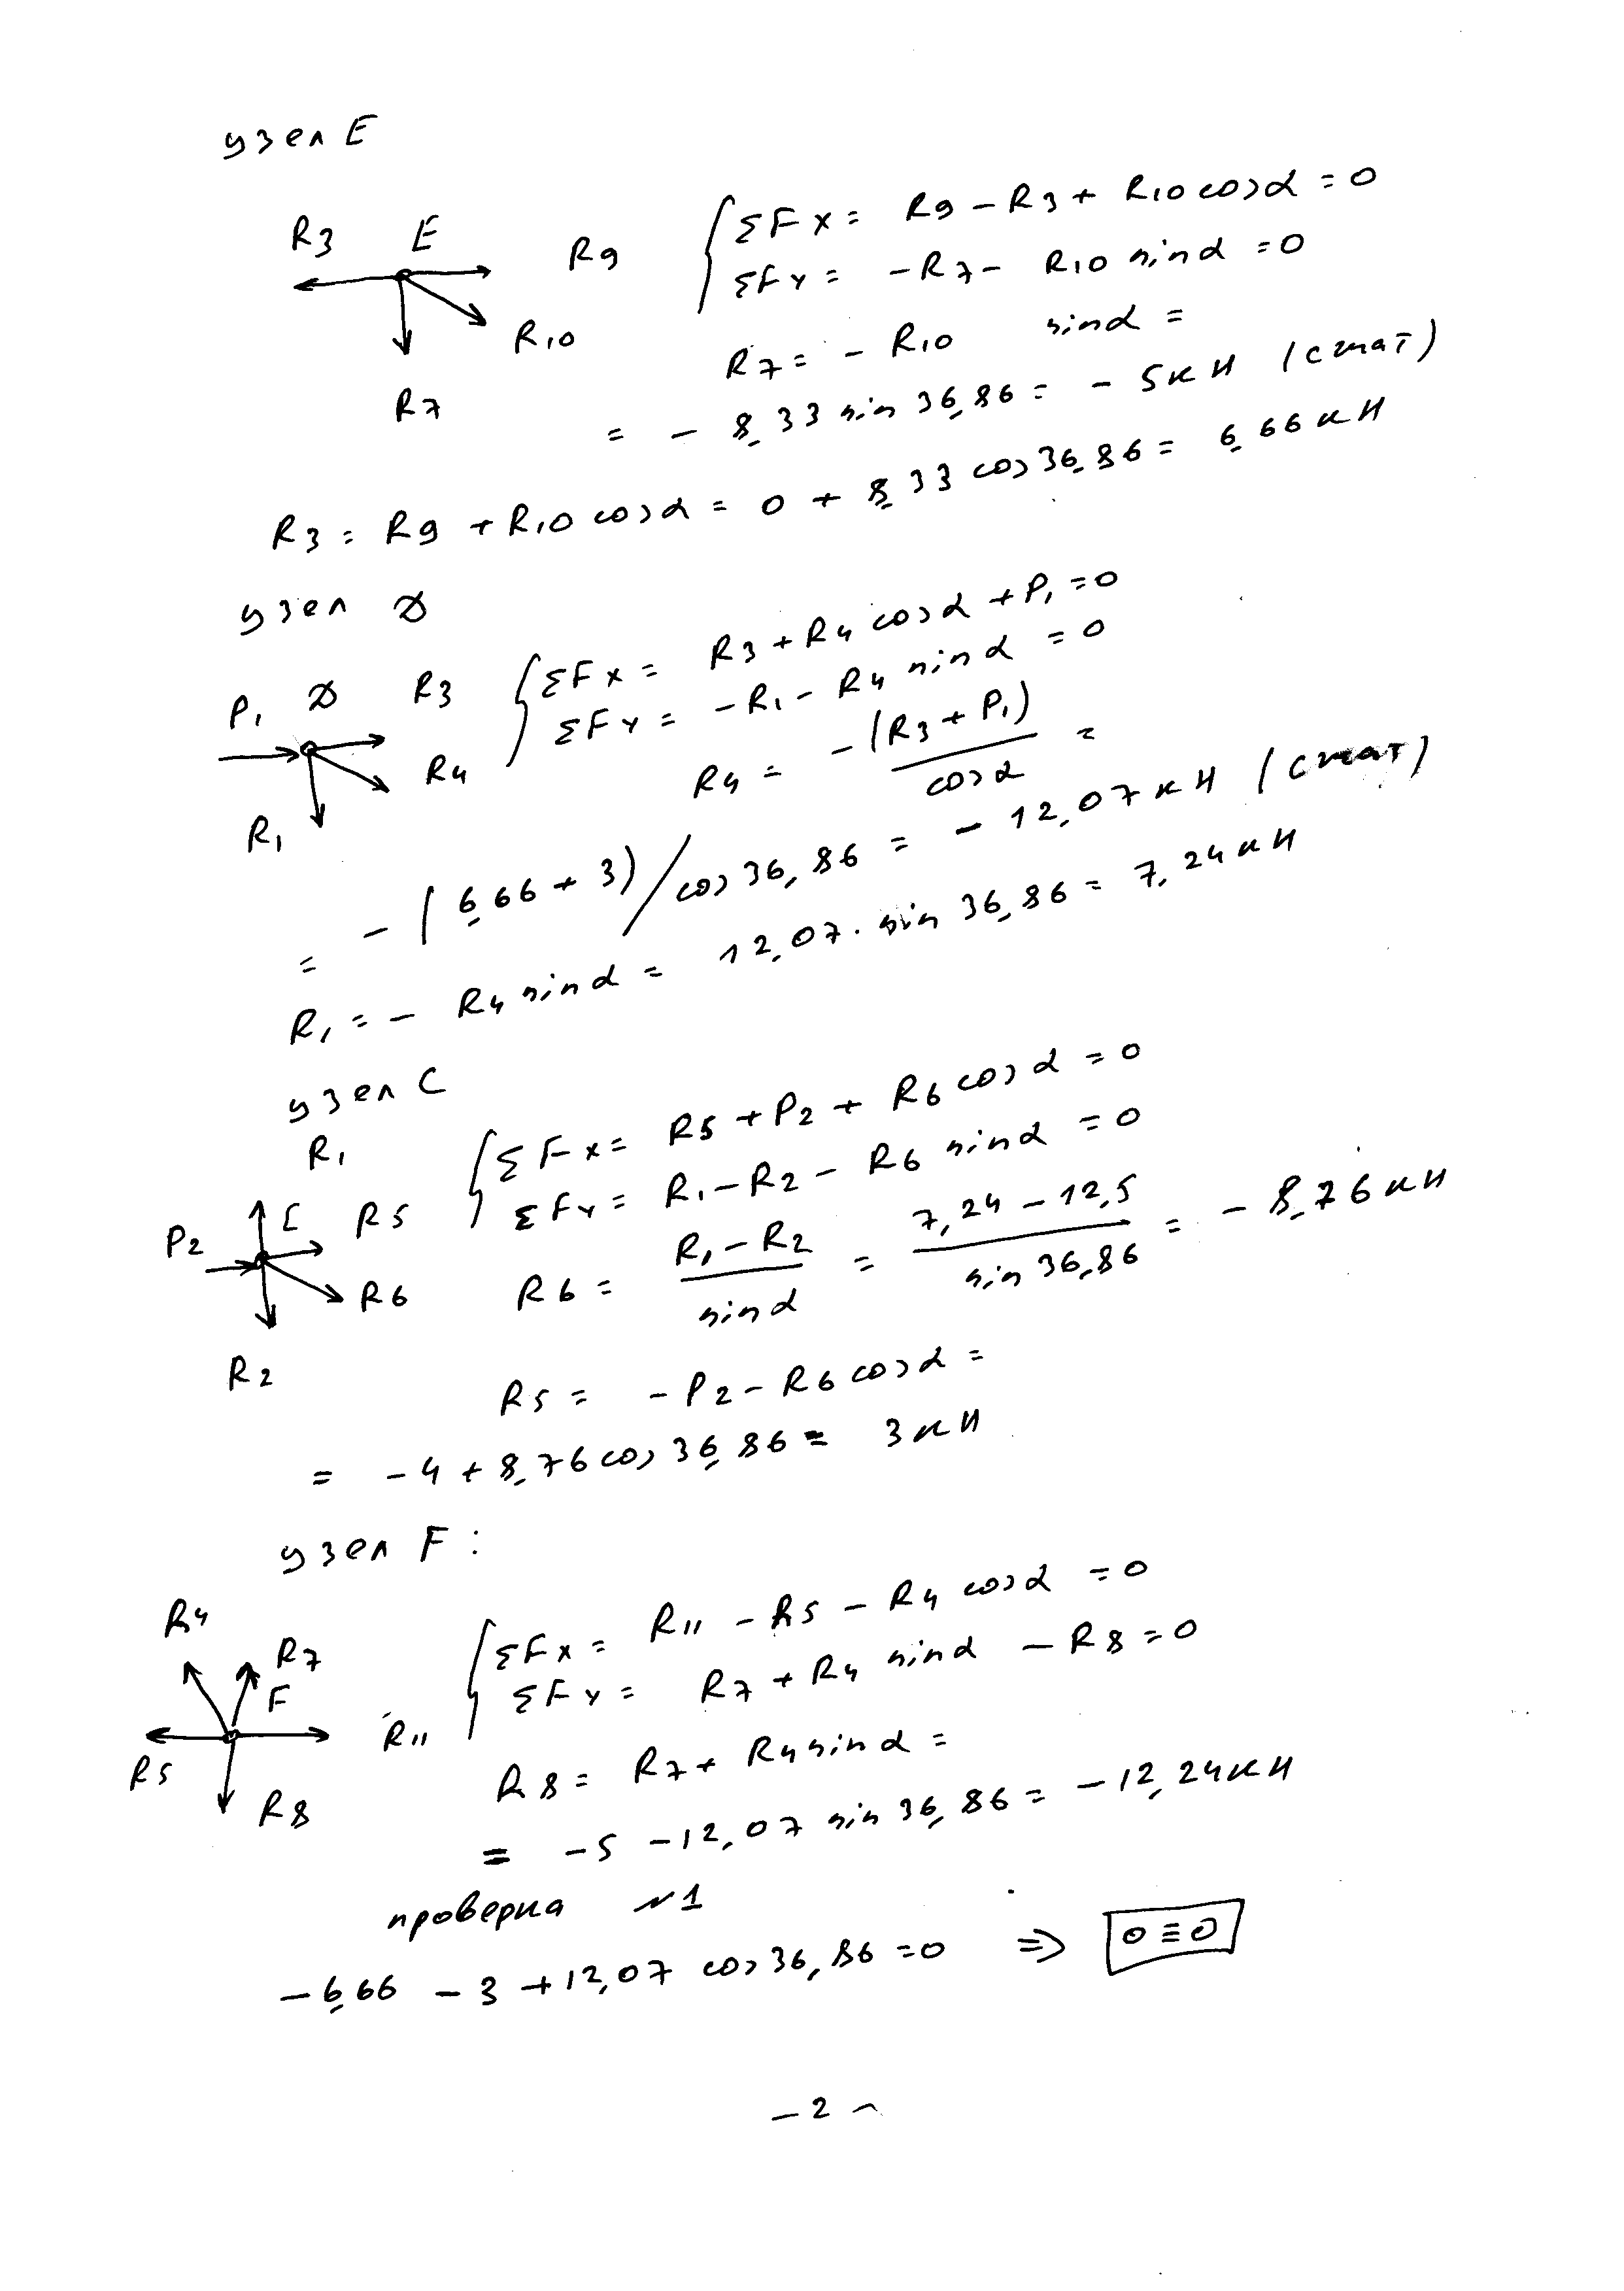 узел E
R3 E R9
R10
R7
ΣFx = R9 - R3 + R10 cosα = 0
ΣFy = -R7 - R10 sinα = 0
R7 = - R10 sinα =
= - 8,33 sin 36,86 = - 5кН (сжат)
R3 = R9 + R10 cosα = 0 + 8,33 cos 36,86 = 6,66 кН
узел D
P1 D R3
R4
R1
ΣFx = R3 + R4 cosα + P1 = 0
ΣFy = -R1 - R4 sinα = 0
R4 = -(R3 + P1) / cosα =
= - (6,66 + 3) / cos 36,86 = - 12,07 кН (сжат)
R1 = - R4 sinα = 12,07 · sin 36,86 = 7,24 кН
узел C
R1
P2 C R5
R6
R2
ΣFx = R5 + P2 + R6 cosα = 0
ΣFy = R1 - R2 - R6 sinα = 0
R6 = R1 - R2 / sinα = 7,24 - 12,5 / sin 36,86 = - 8,76 кН
R5 = - P2 - R6 cosα =
= - 4 + 8,76 cos 36,86 = 3 кН
узел F:
R4 R7
F
R5 R11
R8
ΣFx = R11 - R5 - R4 cosα = 0
ΣFy = R7 + R4 sinα - R8 = 0
R8 = R7 + R4 sinα =
= -5 - 12,07 sin 36,86 = - 12,24 кН
проверка №1
- 6,66 - 3 + 12,07 cos 36,86 = 0 ⇒ 0 ≡ 0
- 2 -